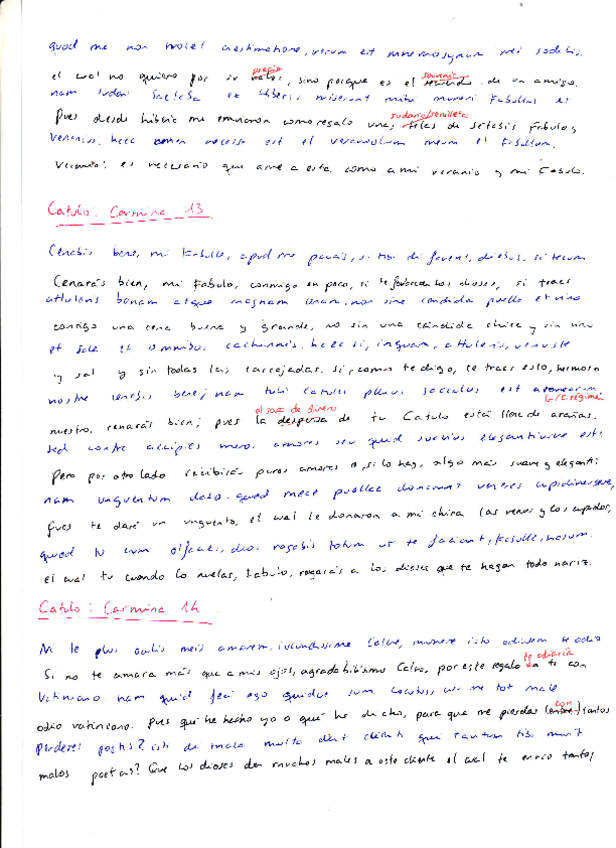 quod me non movet aestimatione, verum est mnemosynum mei sodalis.
precio souvenir
el cual no quiero por su valor, sino porque es el de un amigo.
nam sudari Saetaba ex Hiberis miserunt mihi muneri Fabullus et
sudario/servilleta
Pues desde hiberia me enviaron como regalo unas telas de setabis Fabulo y
Veranius. haec amem necesse est et Veraniolum meum et Fabullum.
Veranio: es necesario que ame a esta como a mi veranio y mi Fabulo.
Catulo: Carmina 13
Cenabis bene, mi Fabulle, apud me paucis, si tibi di favent, diebus. si tecum
Cenarás bien, mi Fabulo, conmigo en poco, si te favorecen los dioses, si traes
attuleris bonam atque magnam cenam, non sine candida puella et vino
contigo una cena buena y grande, no sin una cándida chica y sin vino
et sale et omnibus cachinnis. haec si, inquam, attuleris, venuste
y sal y sin todas las carcajadas. si, como te digo, te traes esto, hermoso
nostre cenabis bene; nam tui Catulli plenus sacculus est aranearum.
el saco de dinero C. régimen
nuestro, cenarás bien; pues la despensa de tu Catulo está llena de arañas.
sed contra accipies meros amores seu quid suavius elegantiusve est:
Pero por otro lado recibirás puros amores o, si lo hay, algo más suave y elegante:
nam unguentum dabo. quod meae puellae donarunt veneres cupidinesque,
pues te daré un unguento, el cual le donaron a mi chica las venus y los cupidos,
quod tu cum olfacies, deos rogabis totum ut te faciant, Fabulle, nasum.
el cual tu cuando lo huelas, Fabulo, rogarás a los dioses que te hagan todo nariz.
Catulo: Carmina 14
Ni te plus oculis meis amarem, iucundissime Calve, munere isto odissem te odio
te odiaría
Si no te amara más que a mis ojos, agradabilísimo Calvo, por este regalo a ti con
Vatiniano nam quid feci ego quidve sum locutus, cur me tot male
con
odio vatiniano: pues qué he hecho yo o qué he dicho, para que me pierdas (entre) tantos
perderes poetis? isti di mala multa dent clienti qui tantum tibi misit
malos poetas? Que los dioses den muchos males a este cliente el cual te envió tantos